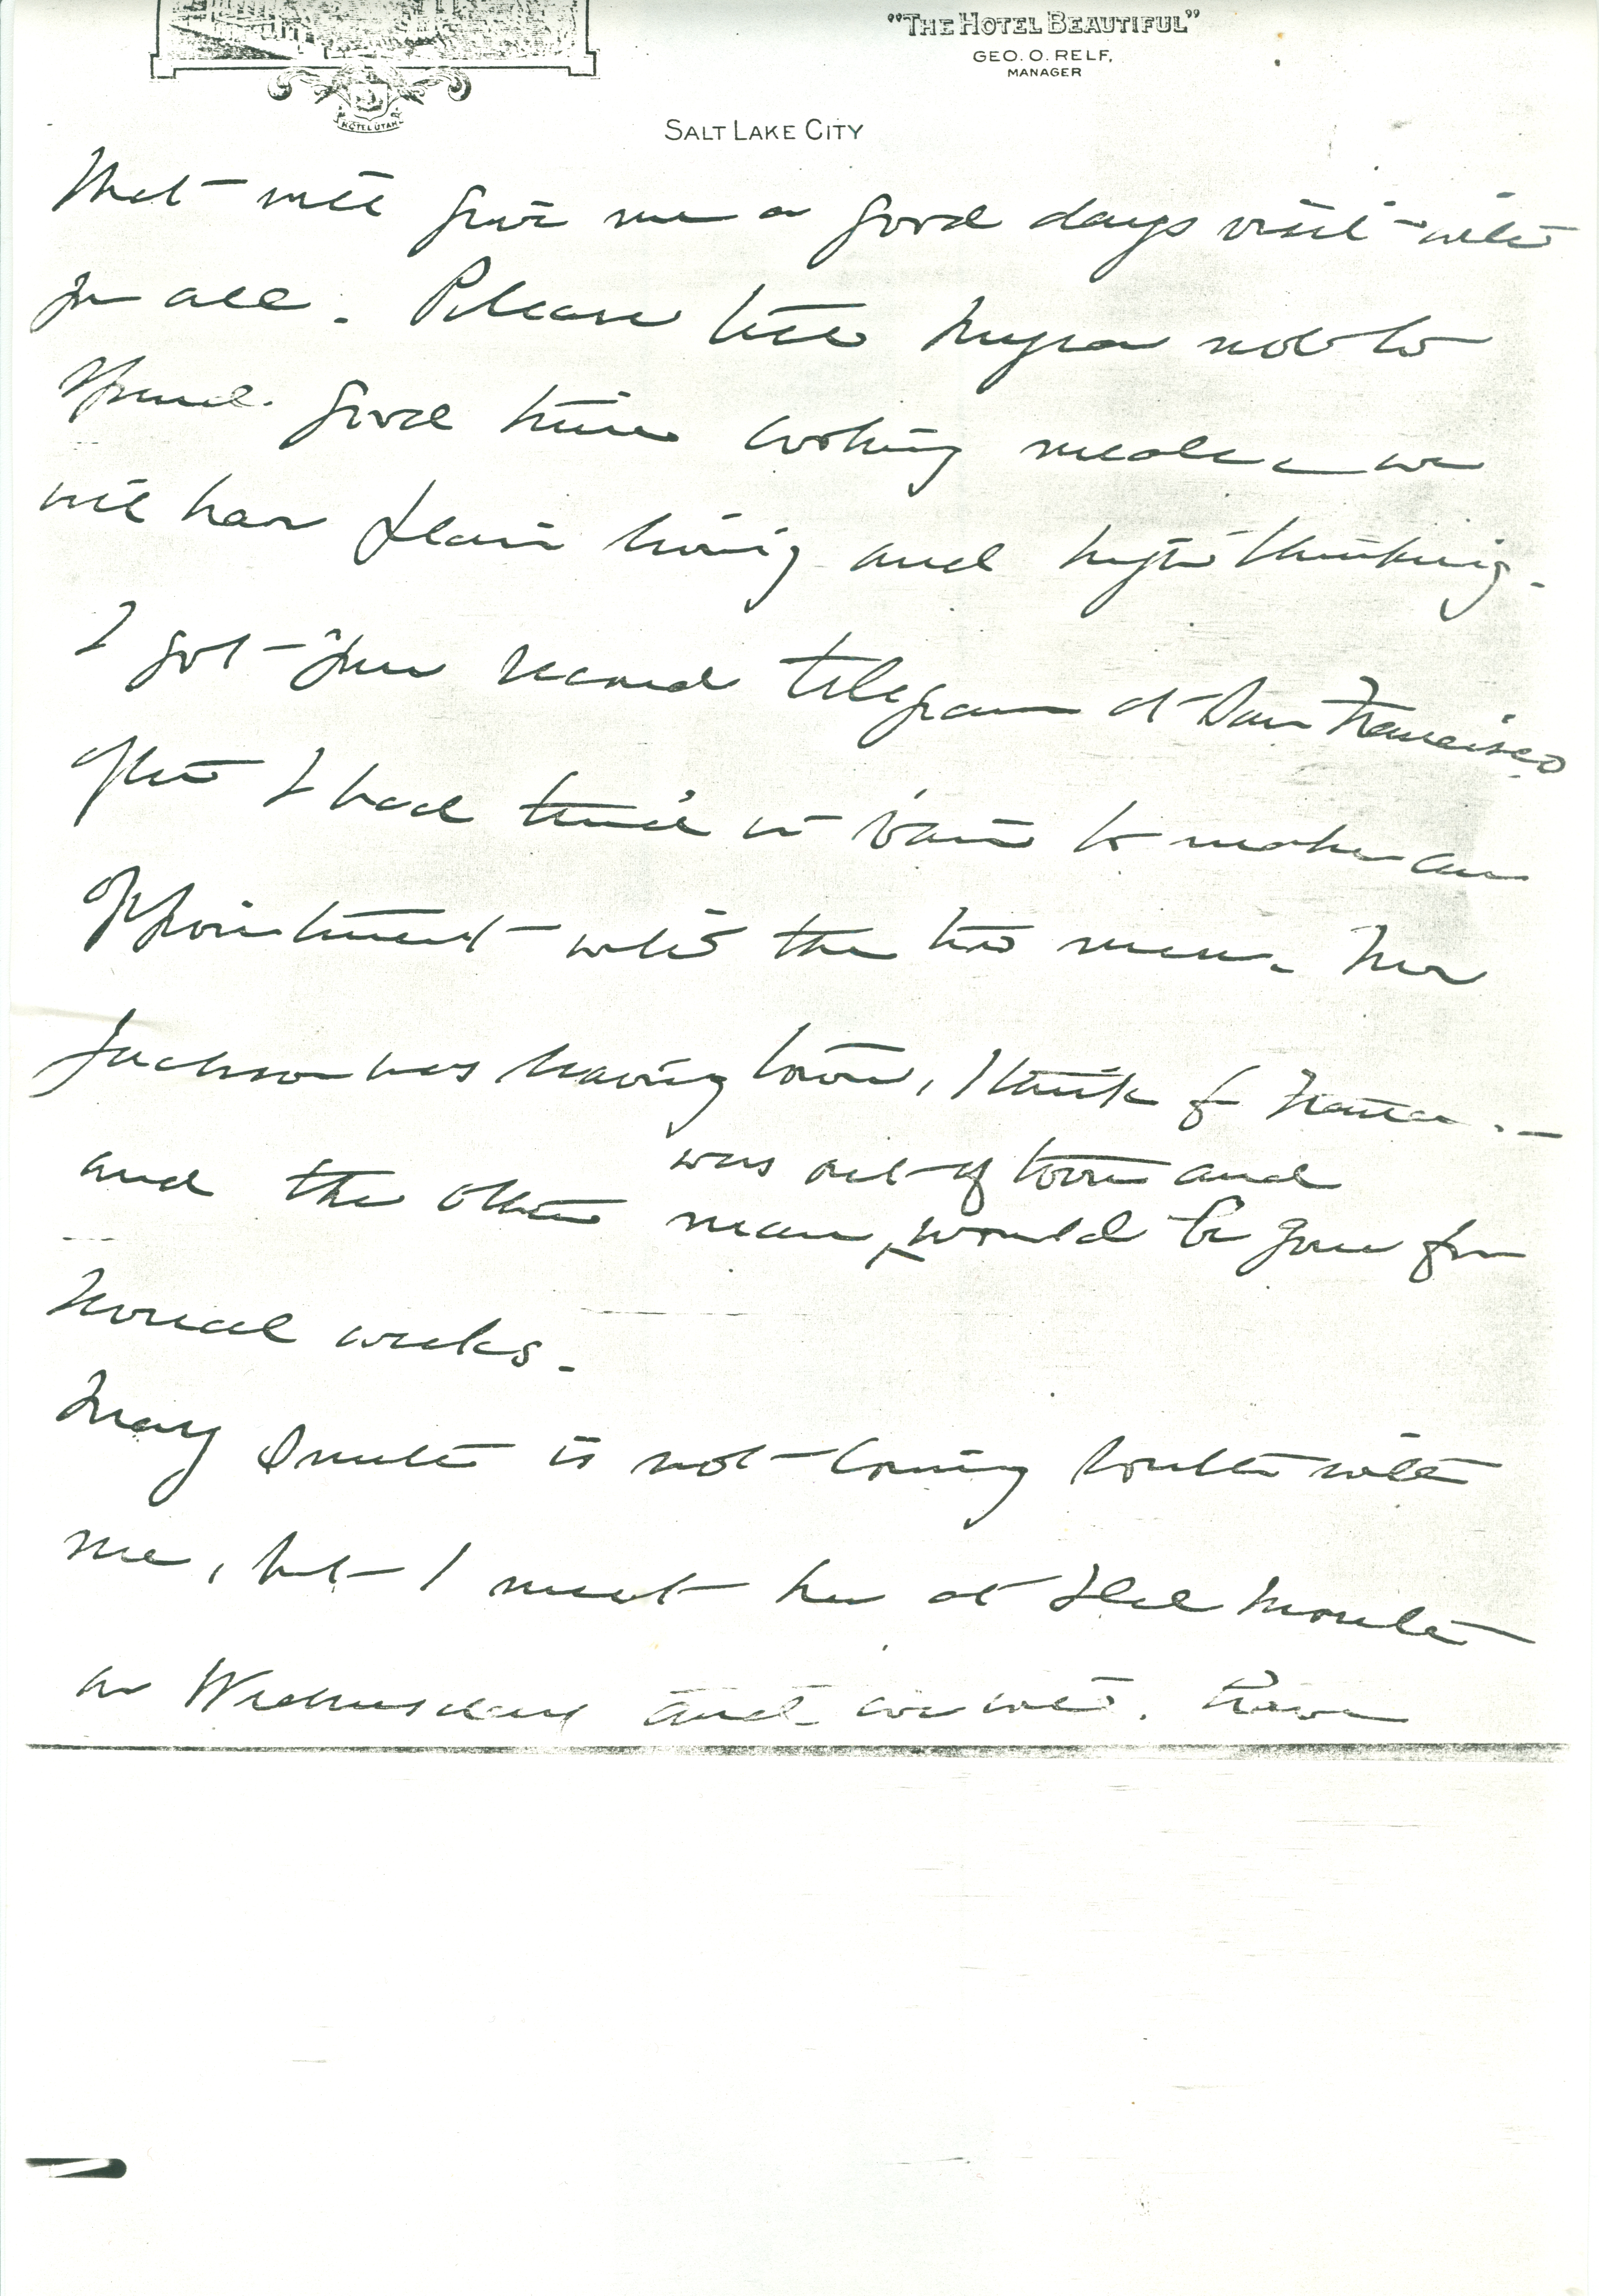 "THE HOTEL BEAUTIFUL"
GEO. O. RELF,
MANAGER
HOTEL UTAH
SALT LAKE CITY
That will give me a good days visit with
you all. Please tell Myra not to
spend good time cooking meals – we
will have plain living and high thinking.
I got your second telegram at San Francisco
after I had tried in vain to make an
appointment with the two men. Mr
Jackson was leaving town, I think for France. –
was out of town and
and the other man, would be gone for
several weeks.
Mary Smith is not coming south with
me, but I meet her at Del Monte
on Wednesday and we will. have